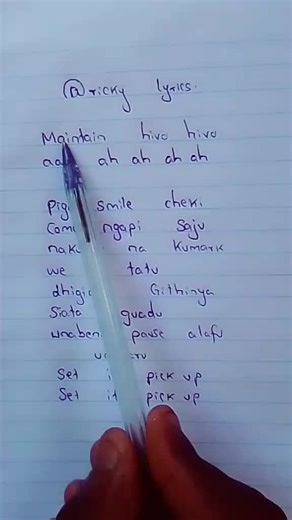 @ricky lyrics.
Maintain hivo hivo
ah ah ah ah
smile cheki
ngapi saju
na Kumark
we tatu
Githinya
Siata guadu
unaben pause alafu
Set pick up
Set it pick up